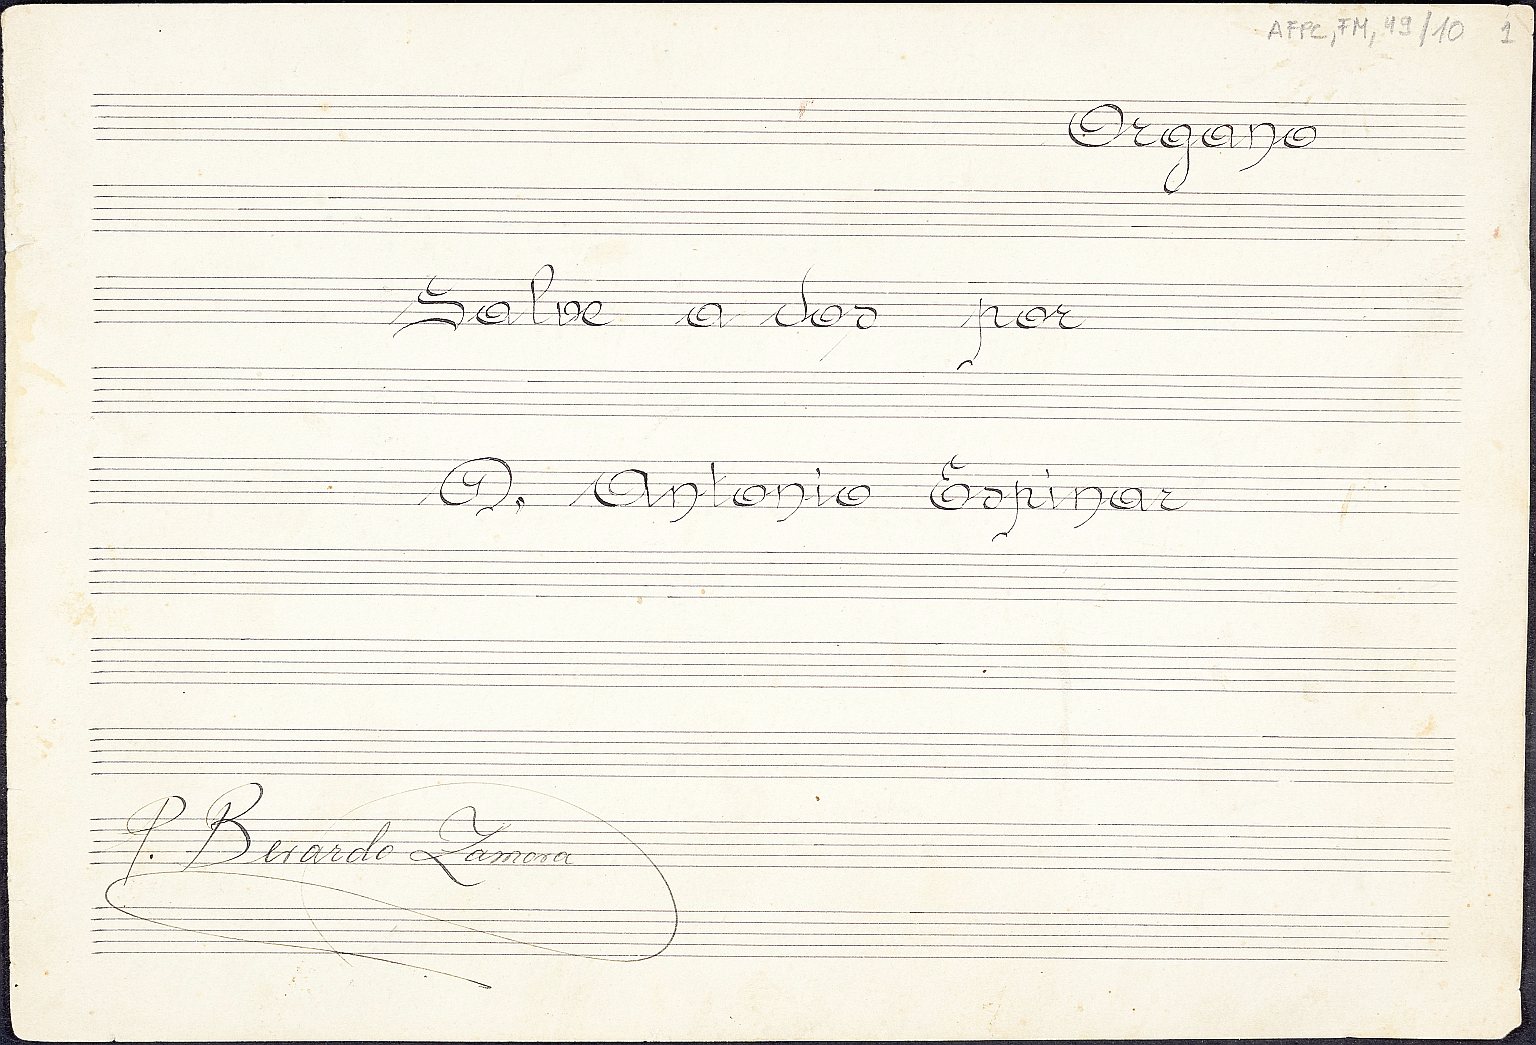 AFPC, FM, 49/10 1
Organo
Salve a dos por
D. Antonio Espinar
P. Berardo Zamora